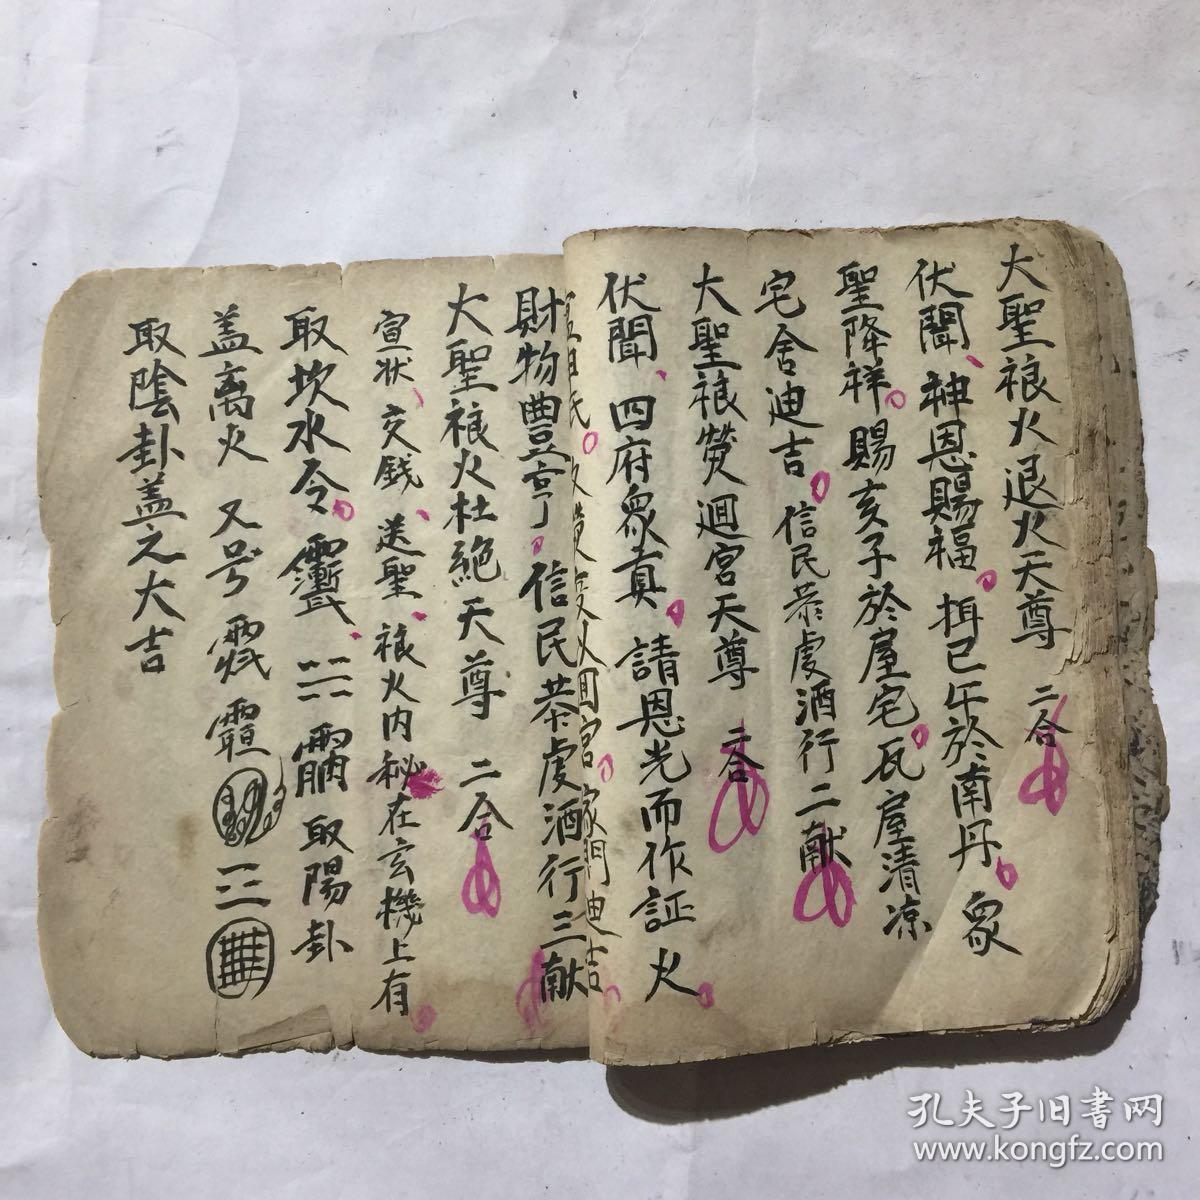 大聖禳火退火天尊 二合
伏聞神恩賜福 巳午於南丹 眾
聖降祥 賜亥子於屋宅 瓦屋清凉
宅舍迪吉 信民恭虔酒行二献
大聖禳熒迴宮天尊 二合
伏聞 四府眾真 請恩光而作証 火
以囬宮 家門迪吉
財物豐亨 信民恭虔酒行三献
大聖禳火杜絕天尊 二合
宣状 交錢 送聖 禳火内秘在玄機上有
取坎水令 取陽卦
盖离火 又号
取陰卦盖之大吉
孔夫子旧书网
www.kongfz.com